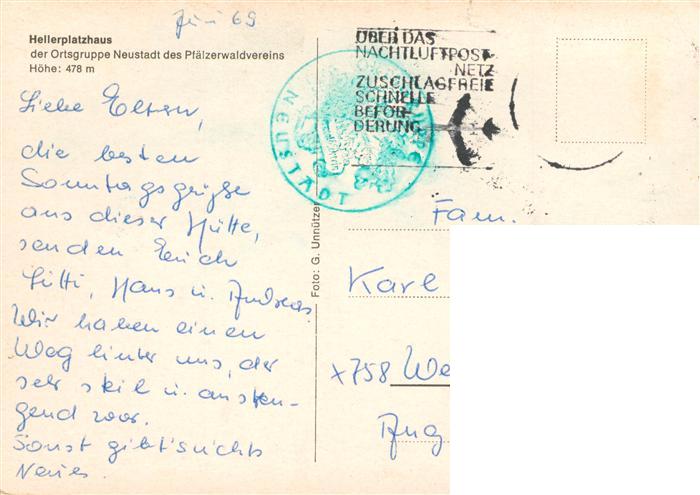 Juni 69
Hellerplatzhaus
der Ortsgruppe Neustadt des Pfälzerwaldvereins
Höhe: 478 m
Liebe Eltern,
die besten
Sonntagsgrüße
aus dieser Hütte,
senden Euch
Litti, Hans u. Andreas.
Wir haben einen
Weg hinter uns, der
sehr steil u. anstren-
gend war.
Sonst gibt's nichts
Neues.
ÜBER DAS
NACHTLUFTPOST-
NETZ
ZUSCHLAGFREIE
SCHNELLE
BEFÖR-
DERUNG
NEUSTADT
Foto: G. Unnützer
Fam.
Karl
x758 We
Aug